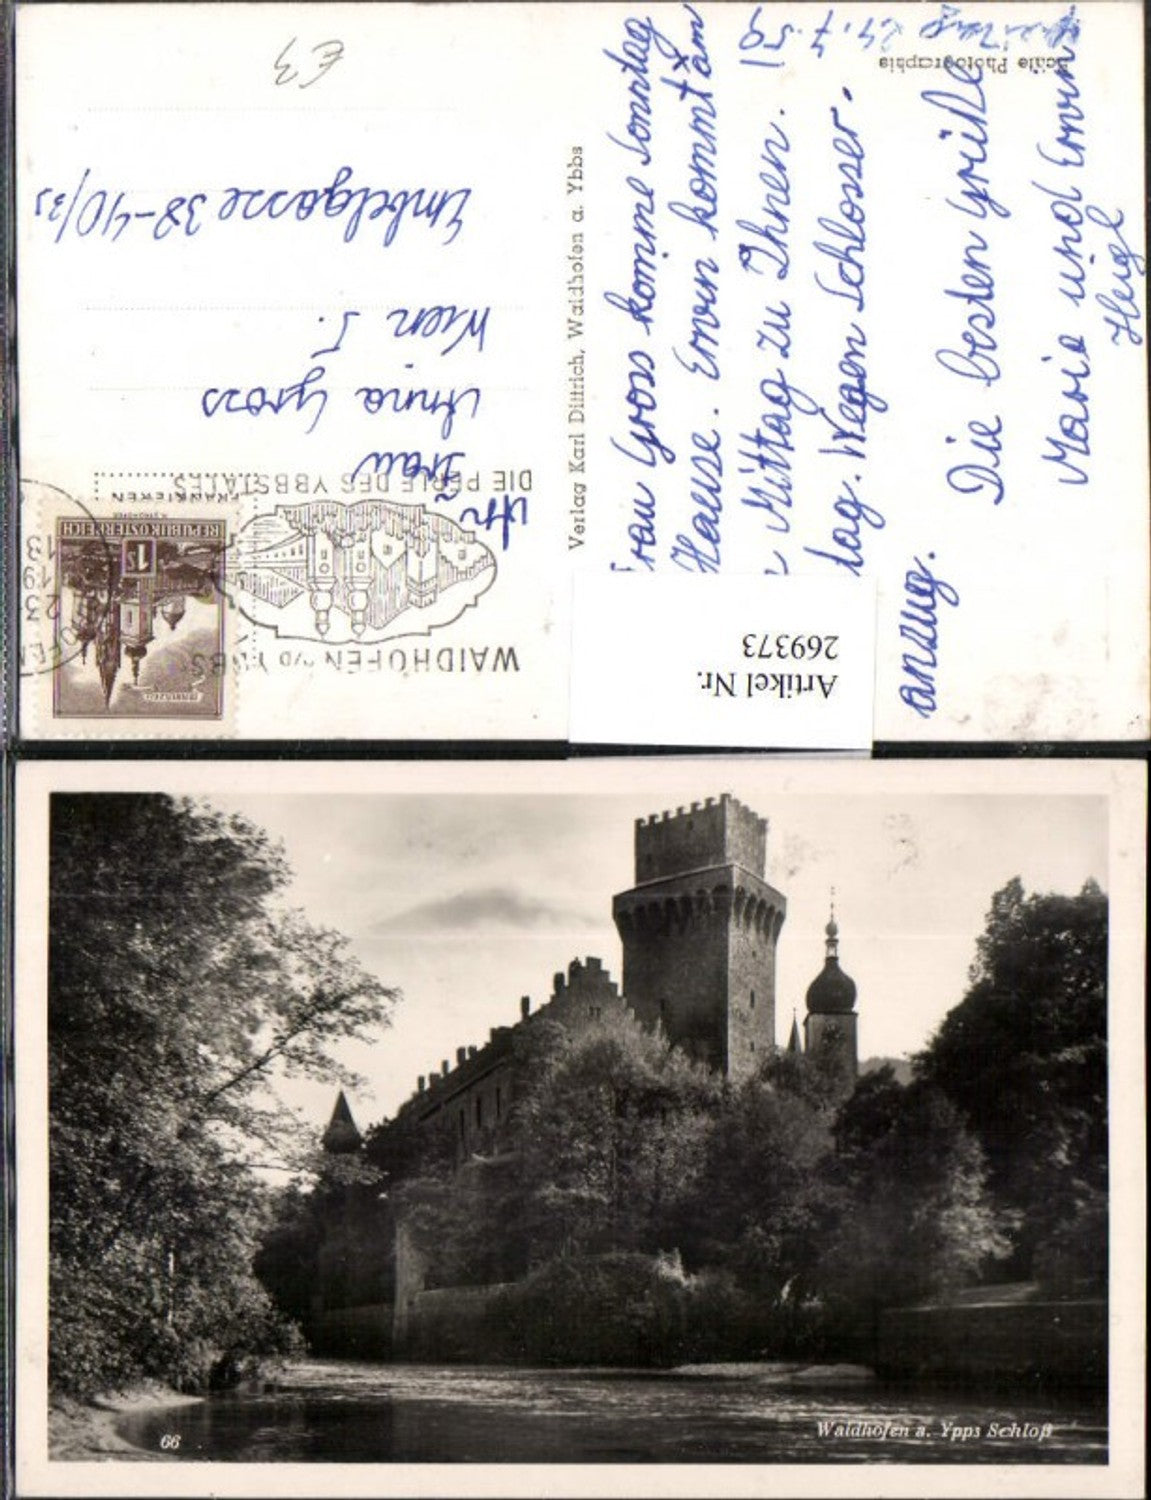 24.7.59
Frau Gross komme Sonntag
Hause. Erwin kommt am
Mittag zu Ihnen.
tag. Wegen Schlosser.
anzug.
Die besten Grüße
Marie und Erwin
Heigl
Photographie
Verlag Karl Dittrich, Waidhofen a. Ybbs
WAIDHOFEN a/d YBBS
DIE PERLE DES YBBSTALES
FRANKIEREN
REPUBLIK ÖSTERREICH
1 S
An
Frau
Anna Gross
Wien 5.
Embelgasse 38-40/31
€3
Artikel Nr.
269373
66
Waidhofen a. Ypps Schloß